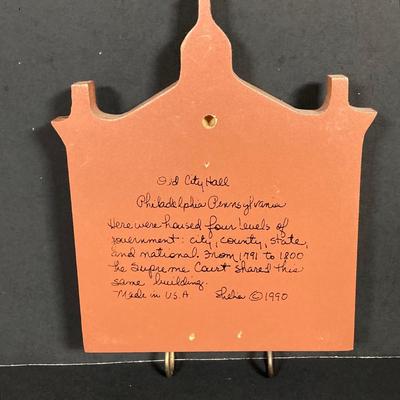 Old City Hall
Philadelphia Pennsylvania
Here were housed four levels of
government: city, county, state,
and national. From 1791 to 1800
the Supreme Court shared this
same building.
Made in U.S.A Shelia ©1990